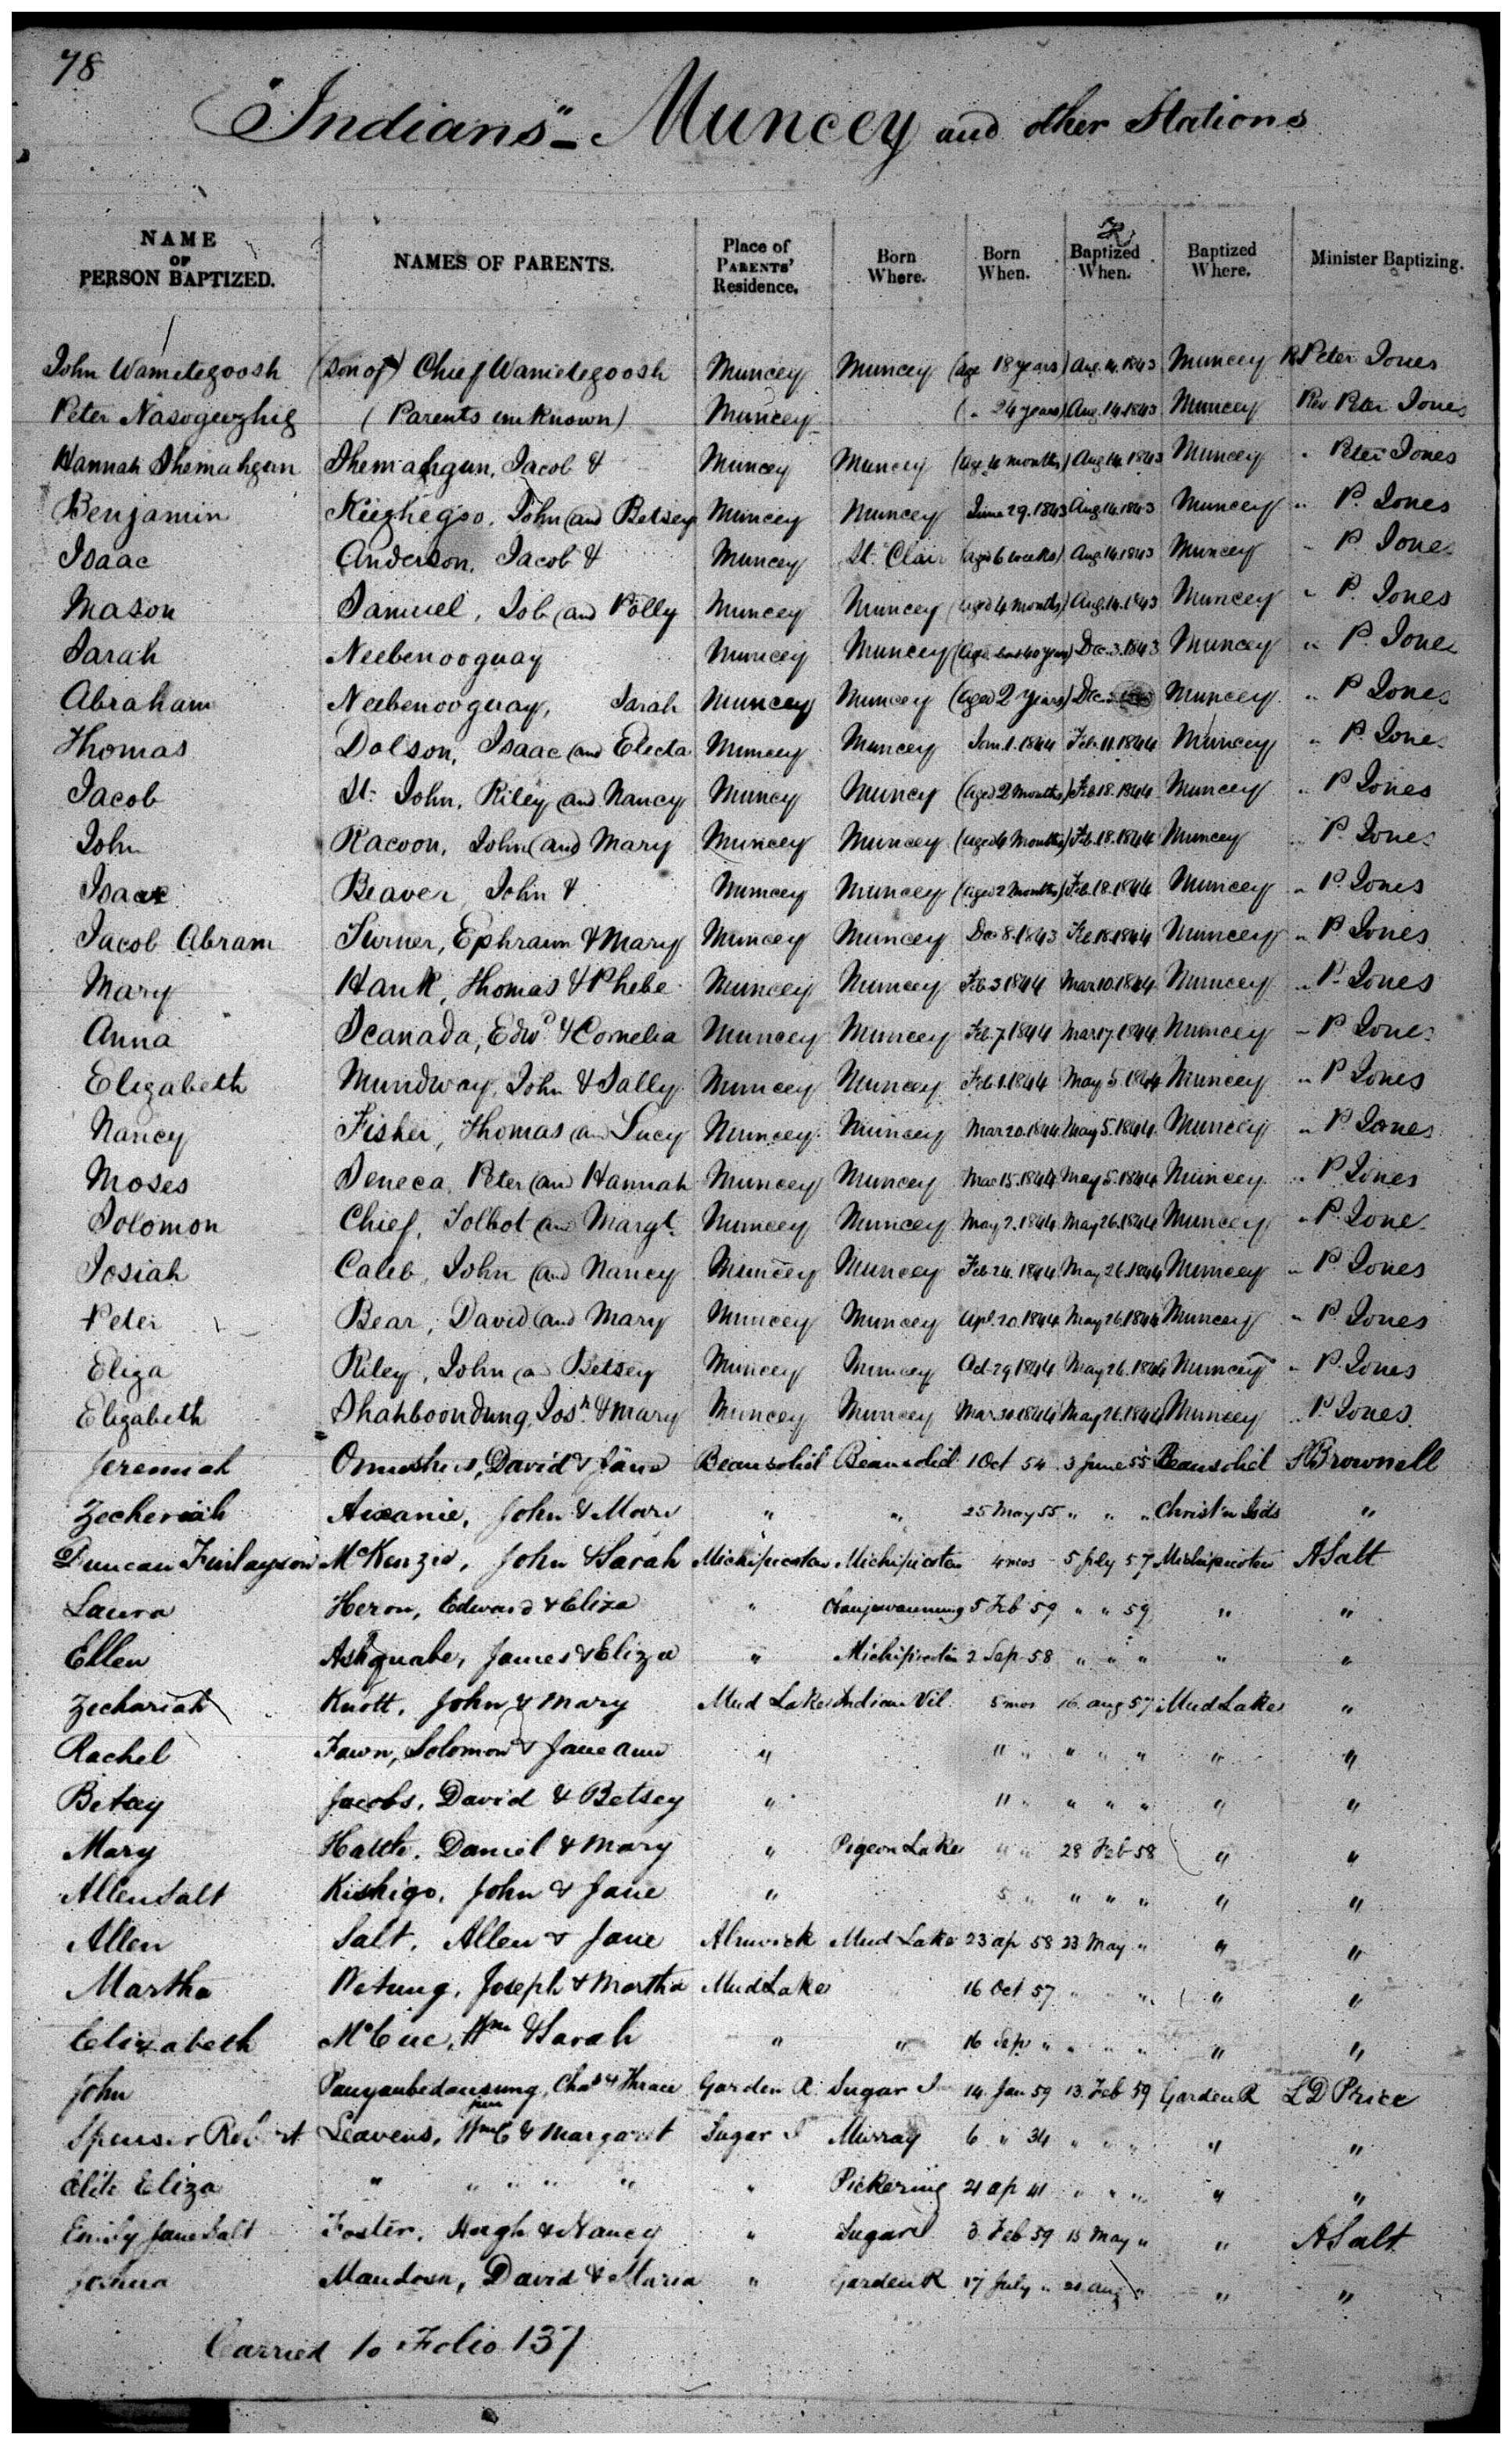 78
"Indians" - Muncey and other Stations
NAME OF PERSON BAPTIZED. NAMES OF PARENTS. Place of PARENTS' Residence. Born Where. Born When. Baptized When. Baptized Where. Minister Baptizing.
John Wametegoosh (Son of) Chief Wametegoosh Muncey Muncey (age 18 years) Aug. 14. 1843 Muncey R Peter Jones
Peter Nasogwzhig (Parents unknown) Muncey (" 24 years) Aug. 14. 1843 Muncey Rev Peter Jones
Hannah Shemahgan Shemahgan, Jacob & Muncey Muncey (age 4 months) Aug 14. 1843 Muncey " Peter Jones
Benjamin Keezhegoo, John (and Betsey Muncey Muncey June 29. 1843 Aug. 14. 1843 Muncey " P. Jones
Isaac Anderson, Jacob & Muncey St. Clair (aged 6 weeks) Aug. 14. 1843 Muncey " P. Jones
Mason Samuel, Job (and Polly Muncey Muncey (aged 4 months) Aug. 14. 1843 Muncey " P. Jones
Sarah Neebenooguay Muncey Muncey (age 40 years) Dec. 3. 1843 Muncey " P. Jones
Abraham Neebenooguay, Sarah Muncey Muncey (aged 2 years) Dec. Muncey " P Jones
Thomas Dolson, Isaac (and Electa Muncey Muncey Jan. 1. 1844 Feb. 11. 1844 Muncey " P. Jones
Jacob St. John, Riley (and Nancy Muncey Muncey (aged 2 months) Feb 18. 1844 Muncey " P Jones
John Racoon, John (and) Mary Muncey Muncey (aged 4 months) Feb. 18. 1844 Muncey " P. Jones
Isaac Beaver, John & Muncey Muncey (aged 2 months) Feb. 18. 1844 Muncey " P. Jones
Jacob Abram Turner, Ephraim & Mary Muncey Muncey Dec 8. 1843 Feb. 18. 1844 Muncey " P. Jones
Mary Hank, Thomas & Phebe Muncey Muncey Feb. 3 1844 Mar. 10. 1844 Muncey " P. Jones
Anna Scanada, Edwd & Cornelia Muncey Muncey Feb. 7. 1844 Mar 17. 1844 Muncey " P Jones
Elizabeth Mundway, John & Sally Muncey Muncey Feb. 1. 1844 May 5. 1844 Muncey " P Jones
Nancy Fisher, Thomas (and Lucy Muncey Muncey Mar 20. 1844 May 5. 1844 Muncey " P Jones
Moses Seneca, Peter (and Hannah Muncey Muncey Mar 15. 1844 May 5. 1844 Muncey " P. Jones
Solomon Chief, Tolbot and Margt. Muncey Muncey May 2. 1844 May 26. 1844 Muncey " P. Jones
Josiah Caleb, John (and Nancy Muncey Muncey Feb 24. 1844 May 26. 1844 Muncey " P. Jones
Peter Bear, David (and Mary Muncey Muncey Apl. 20. 1844 May 26. 1844 Muncey " P. Jones
Eliza Riley, John (and Betsey Muncey Muncey Oct. 29 1844 May 26. 1844 Muncey " P. Jones
Elizabeth Shahboondung, Josh. & Mary Muncey Muncey Mar 30 1844 May 26. 1844 Muncey " P. Jones.
Jeremiah David & Jane Beausoliel Beausoliel 1 Oct 54 3 June 55 Beausoliel Brownell
Zecheriah John & " " 25 May 55 " " " Christn Isds "
Duncan Finlayson McKenzie, John & Sarah Michipicoton Michipicoton 4 mos 5 July 57 Michipicoton A Salt
Laura Heron, Edward & Eliza " 5 Feb 59 " " 59 " "
Ellen Ashquabe, James & Eliza " Michipicoton 2 Sep 58 " " " " "
Zechariah Knott, John & Mary Mud Lake Indian Vil. 5 mos 16 aug 57 Mud Lake "
Rachel Fawn, Solomon & Jane Ann " 11 " " " " " "
Betsy Jacobs, David & Betsey " 11 " " " " " "
Mary Daniel & Mary " Pigeon Lake " " 28 Feb 58 " "
Allen Salt Kishigo, John & Jane " 5 " " " " " "
Allen Salt, Allen & Jane Alnwick Mud Lake 23 ap 58 23 May " " "
Martha Wetung, Joseph & Martha Mud Lake 16 Oct 57 " " " " "
Elizabeth McCue, Wm & Sarah " " 16 Sep " " " " " "
John Chas & Garden R. Sugar I 14 Jan 59 13 Feb 59 Garden R L D Price
Spenser Robert Leavens, Wm C & Margaret Sugar I Murray 6 " 34 " " " " "
Eliza " " " " " " Pickering 21 ap 41 " " " " "
Emily Jane Salt Foster, Hugh & Nancy " Sugar I 3 Feb 59 15 May " " A Salt
Joshua David & Maria " Garden R 17 July " 21 aug " " "
Carried to Folio 137